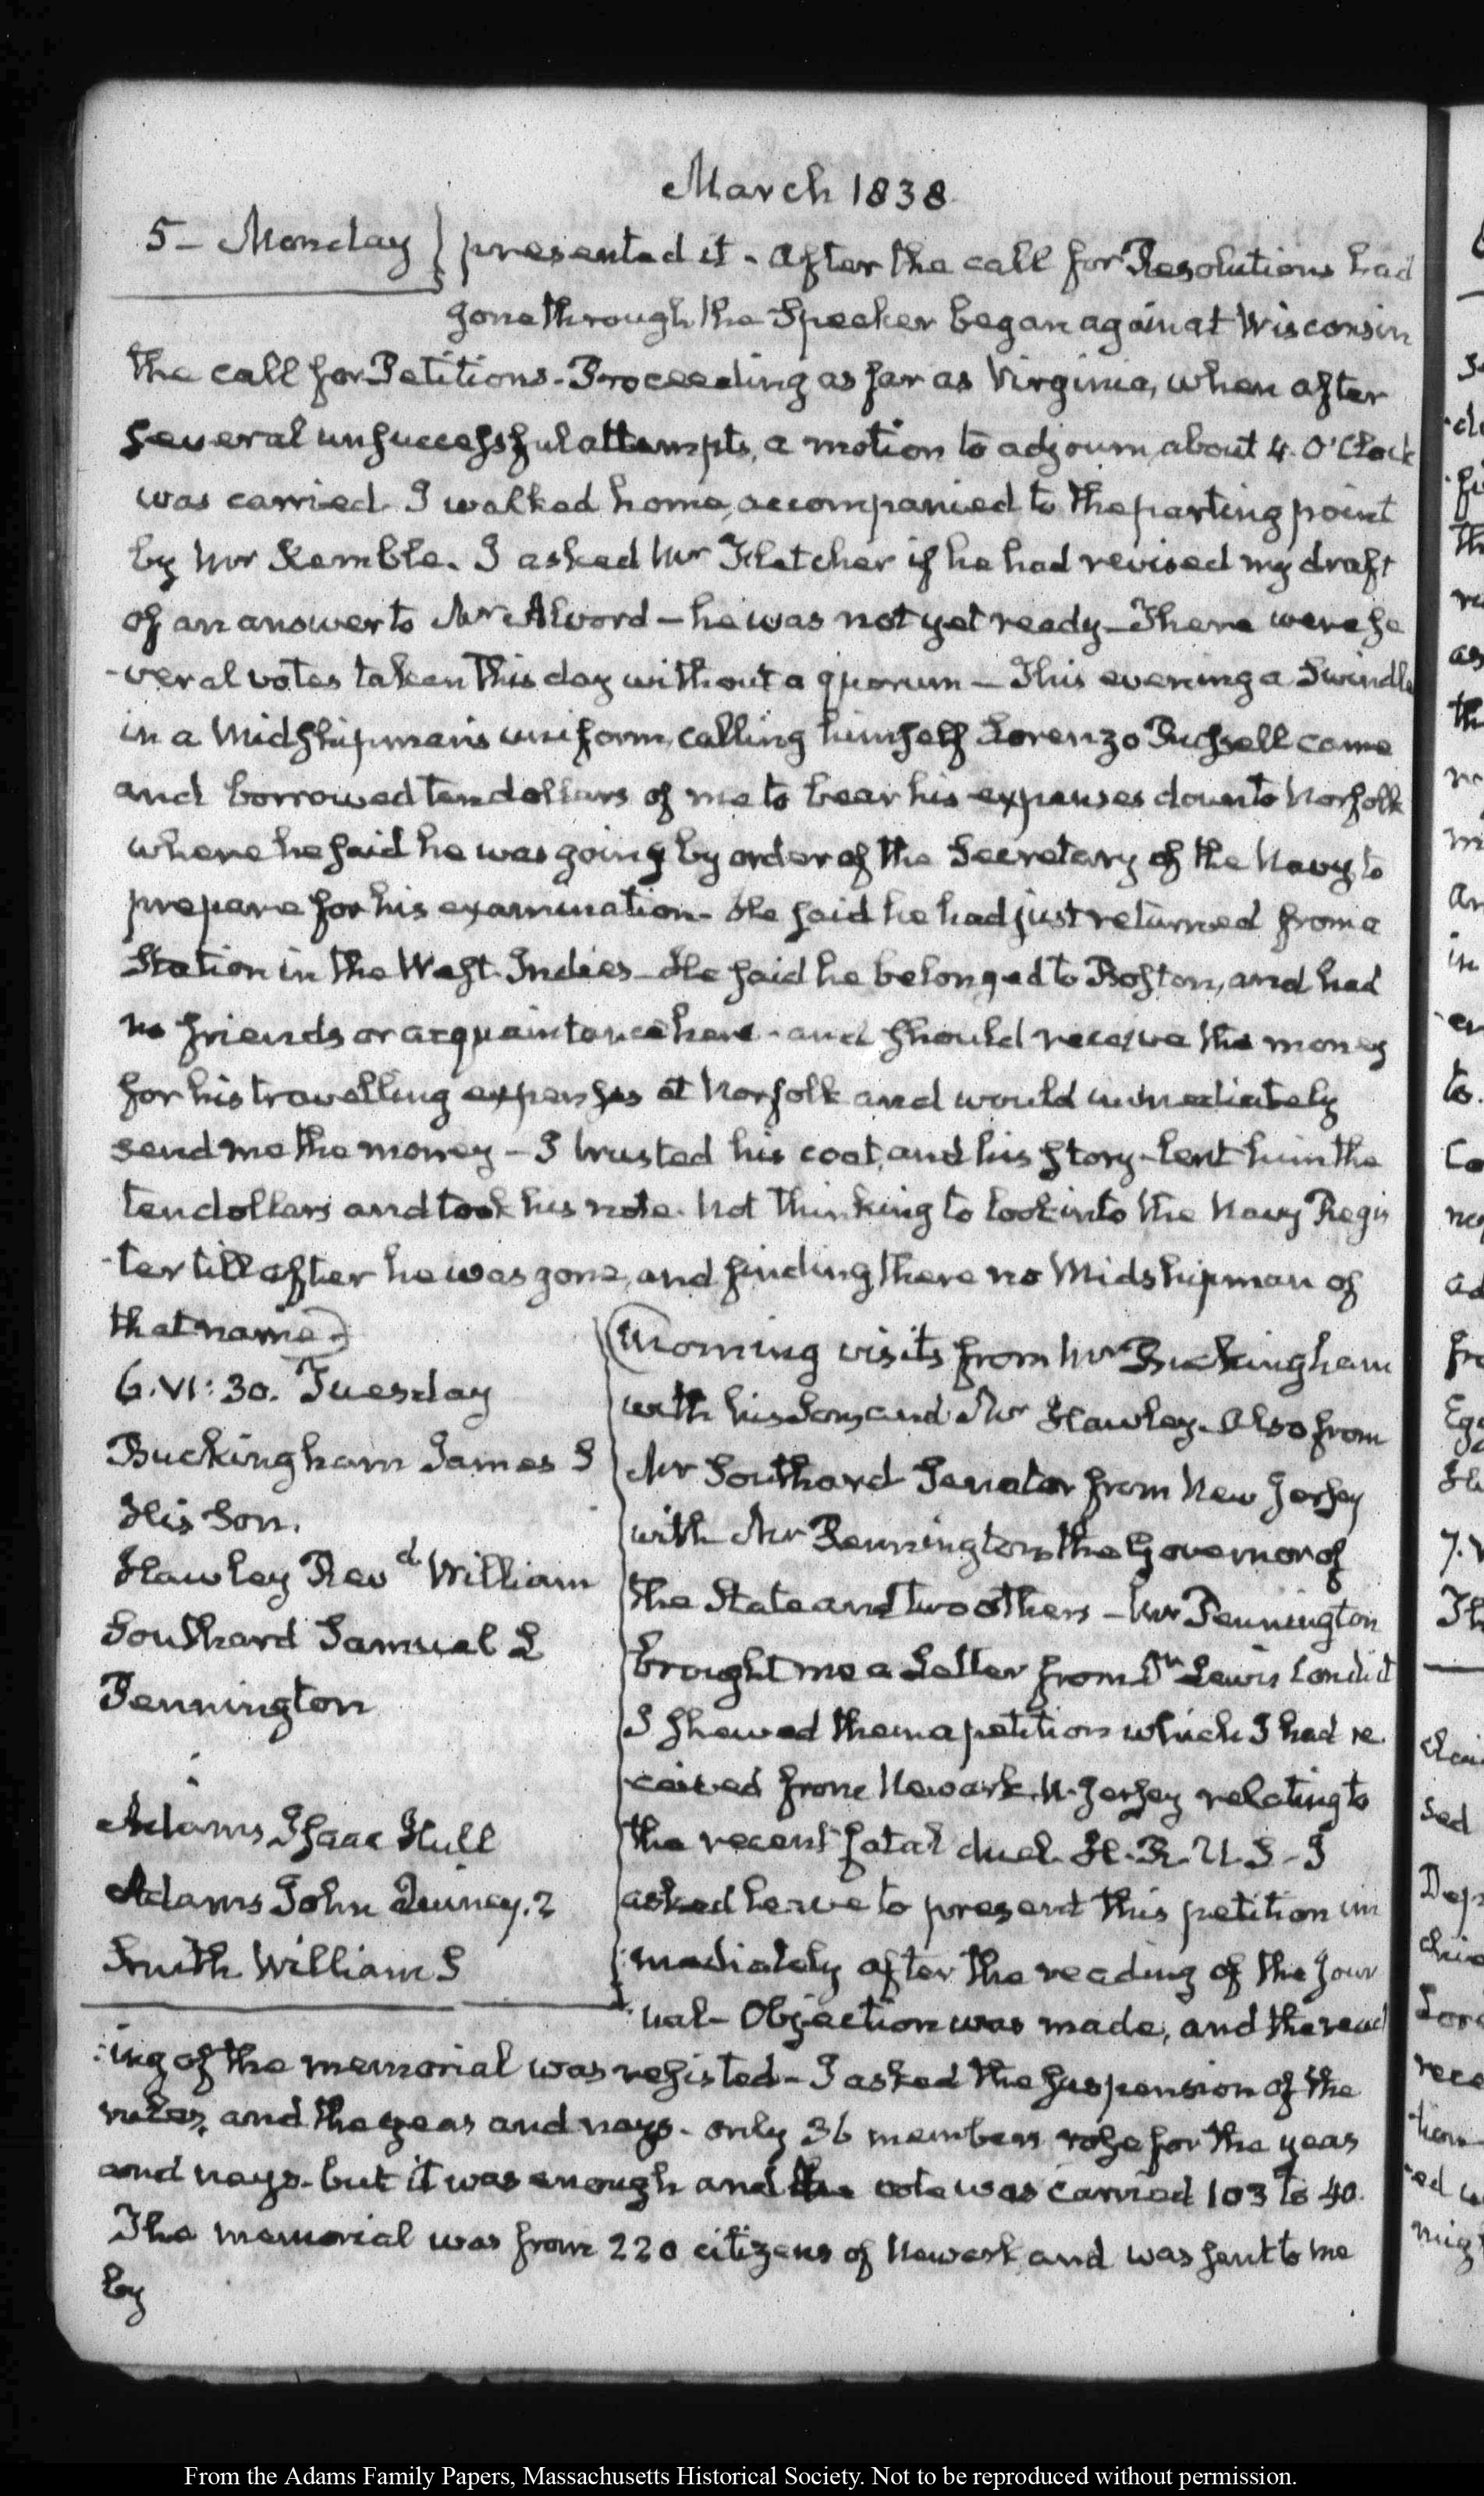 March 1838
5 - Monday } presented it - After the call for Resolutions had
gone through the Speaker began again at Wisconsin
the call for Petitions - Proceeding as far as Virginia, when after
several unsuccessful attempts, a motion to adjourn about 4. O'Clock
was carried. I walked home, accompanied to the parting point
by Mr Kemble. I asked Mr Fletcher if he had revised my draft
of an answer to Mr Alvord - he was not yet ready - There were se
-veral votes taken this day without a quorum - This evening a Swindler
in a Midshipman's uniform, calling himself Lorenzo Russell came
and borrowed ten dollars of me to bear his expenses down to Norfolk
where he said he was going by order of the Secretary of the Navy to
prepare for his examination - He said he had just returned from a
Station in the West-Indies - He said he belonged to Boston, and had
no friends or acquaintance here - and should receive the money
for his travelling expenses at Norfolk and would immediately
send me the money - I trusted his coat, and his story - lent him the
ten dollars and took his note. Not thinking to look into the Navy Regis
-ter till after he was gone, and finding there no Midshipman of
that name.
6. VI: 30. Tuesday
Buckingham James S
His Son.
Hawley Revd William
Southard Samuel L
Pennington
Adams Isaac Hull
Adams John Quincy. 2
Smith William S
Morning visits from Mr Buckingham
with his Son, and Mr Hawley. Also from
Mr Southard Senator from New Jersey
with Mr Pennington the Governor of
the State and two others - Mr Pennington
brought me a Letter from Dr Lewis Condict
I shewed them a petition which I had re
ceived from Newark N. Jersey relating to
the recent fatal duel. H. R. U. S - I
asked leave to present this petition im
mediately after the reading of the Jour
nal - Objection was made, and the read
-ing of the memorial was resisted - I asked the suspension of the
rules, and the yeas and nays - only 36 members rose for the yeas
and nays - but it was enough and the vote was carried 103 to 40.
The memorial was from 220 citizens of Newark and was sent to me
by
From the Adams Family Papers, Massachusetts Historical Society. Not to be reproduced without permission.